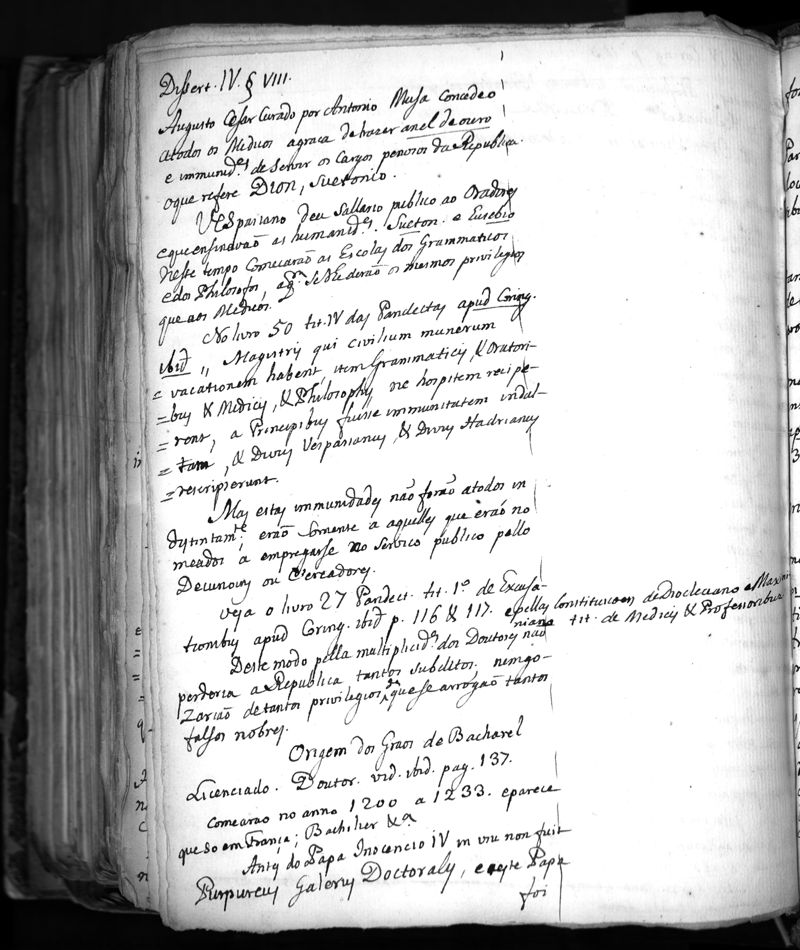 Dissert. IV. § VIII.
Augusto Cesar Curado por Antonio Musa Concedeo
atodos os Medicos agraca de trazer anel de ouro
e immunid.es de Servir os Cargos penosos da Republica.
oque refere DION, Suetonio.
VESpasiano deu Sallario publico ao Oradores
eque ensinavaõ as humanid.es. Sueton. e Eusebio
Neste tempo Comecaraõ as Escolas dos Grammaticos
edos Philosofos, aq.m se Cederaõ os mesmos privilegios
que aos Medicos.
No livro 50 tit. IV das Pandectas apud Coring.
ibid „ Magistris qui civilium munerum
= vacationem habent, item Grammaticis, & Oratori-
= bus & Medicis, & Philosophis ne hospitem recipe-
= rent, a Principibus fuisse immunitatem indul-
= tam, & Divus Vespasianus, & Divus Hadrianus
= rescripserunt.
Mas estas immunidades naõ foraõ atodos in
distintam.te, eraõ Somente a aquelles que eraõ no
meados a empregarse no Servico publico pello
Decurions ou Vereadores.
Veja o livro 27 Pandect. tit. 1º de Excusa-
tionibus apud Coring. ibid p. 116 & 117. epellas Constituicoens de Diocleciano e Maximi
niano tit. de Medicis & Professoribus
Deste modo pella multiplicid.e dos Doutores naõ
perderia a Republica tantos Subditos, nem go-
Zariaõ de tantos privilegios, que se arrogaõ tantos
falsos nobres.
Origem dos Graos de Bacharel
Licenciado. Doutor. vid. ibid. pag. 137.
Comearao no anno 1200 a 1233. eparece
que so em França; Bachelier &a
Antes do Papa Inocencio IV in usu non fuit
Purpureus Galerus Doctoralis, e este Papa
foi